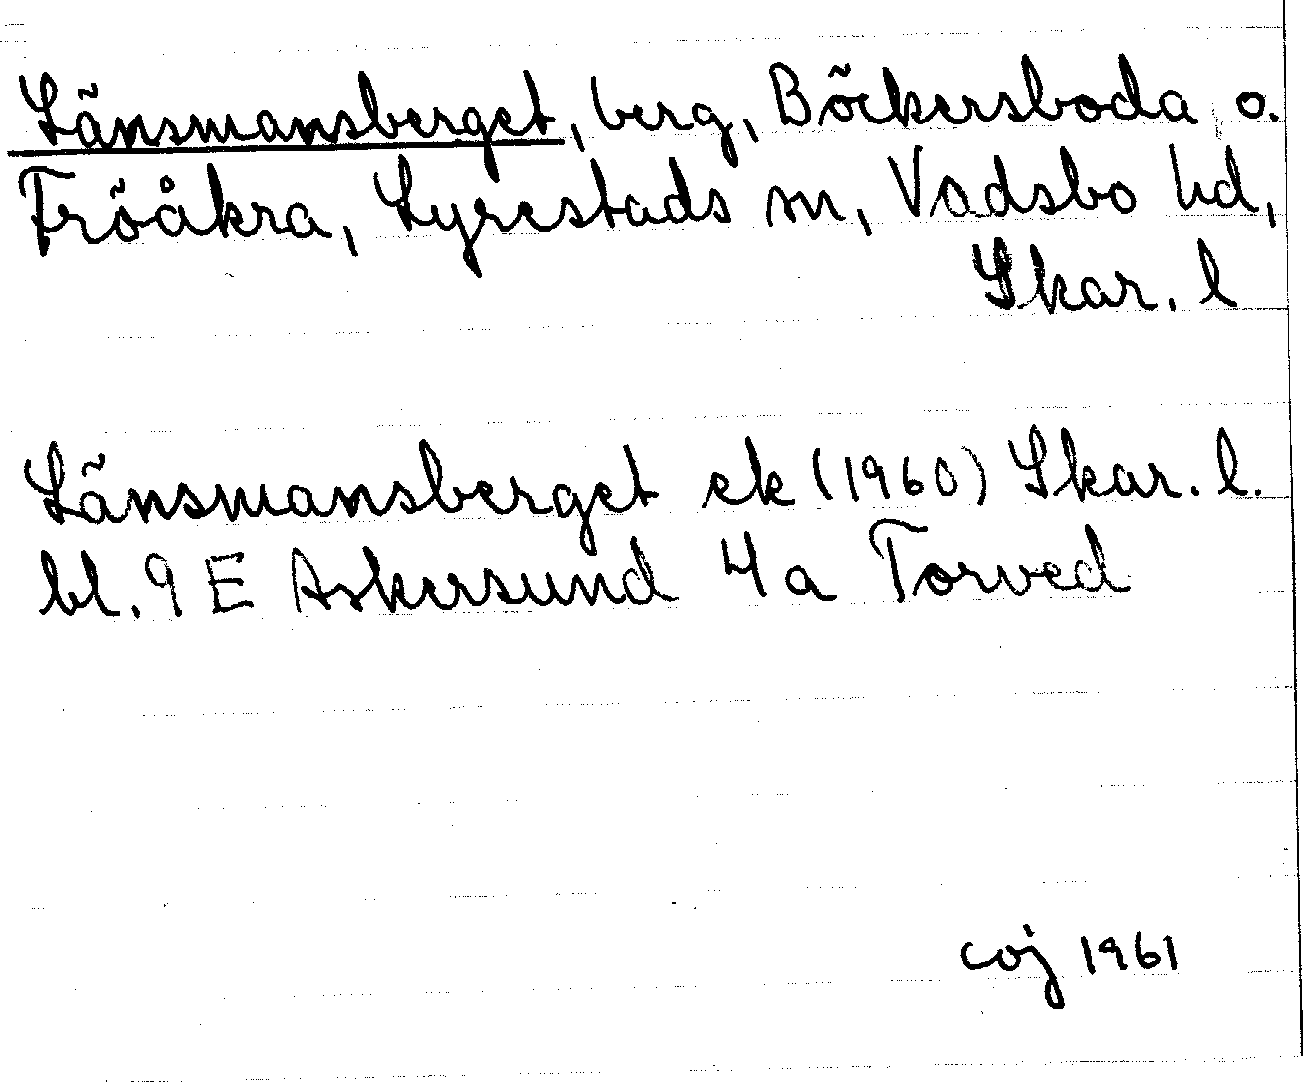 Länsmansberget, berg, Böckersboda o.
Fröåkra, Lyrestads sn, Vadsbo hd,
Skar. l
Länsmansberget ek (1960) Skar. l.
bl. 9 E Askersund 4 a Torved
coj 1961